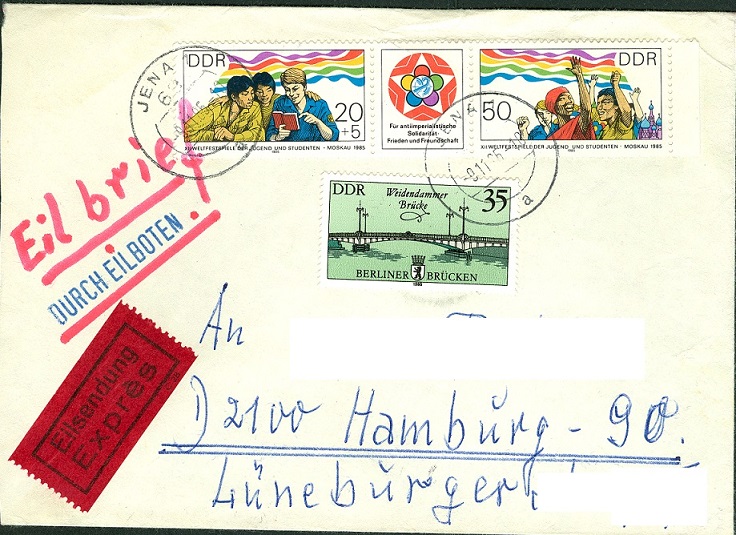 DDR
20
+5
XII. WELTFESTSPIELE DER JUGEND UND STUDENTEN · MOSKAU 1985
Für antiimperialistische
Solidarität,
Frieden und Freundschaft
DDR
50
XII. WELTFESTSPIELE DER JUGEND UND STUDENTEN · MOSKAU 1985
JENA 1
JENA 1
a
Eilbrief
DURCH EILBOTEN
DDR
Weidendammer
Brücke
35
BERLINER BRÜCKEN
1985
Eilsendung
Expres
An
D 2100 Hamburg - 90.
Lüneburger